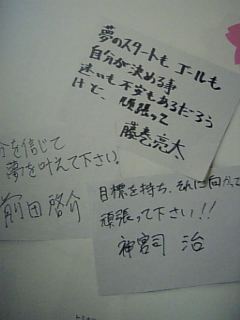 夢のスタートも ゴールも
自分が決める事
迷いも不安もあるだろう
けど、頑張って
藤巻亮太
分を信じて
夢を叶えて下さい。
前田啓介
目標を持ち、それに向かって
頑張って下さい!!
神宮司 治